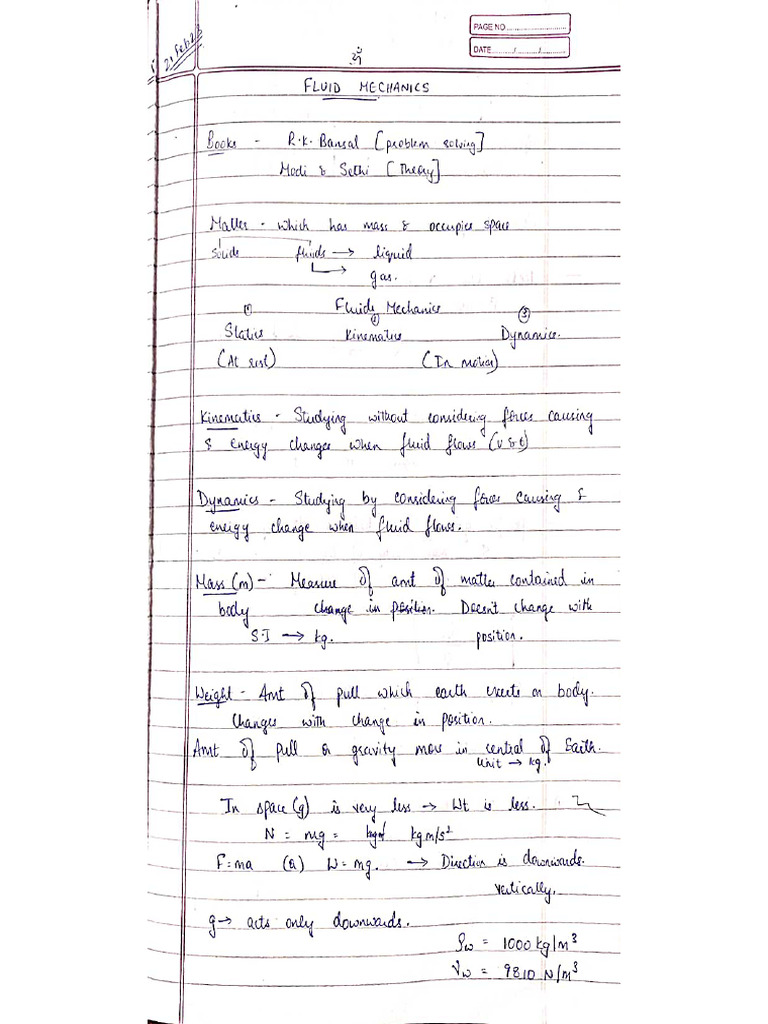 PAGE NO.
DATE / /
21 Feb 23
ॐ
FLUID MECHANICS
Books - R.K. Bansal [problem solving]
Modi & Sethi [Theory]
Matter - which has mass & occupies space
solids fluids → liquid
→ gas.
Fluids Mechanics
① ② ③
Statics Kinematics Dynamics.
(At rest) (In motion)
Kinematics - Studying without considering forces causing
& energy changes when fluid flows (v & t)
Dynamics - Studying by considering forces causing &
energy change when fluid flows.
Mass (m) - Measure of amt of matter contained in
body change in position. Doesnt change with
S.I → kg. position.
Weight - Amt of pull which earth exerts on body.
Changes with change in position.
Amt of pull or gravity more in central of Earth.
Unit → kg.
In space (g) is very less → Wt is less.
N = mg = kgm/s²
F=ma (or) W=mg. → Direction is downwards
vertically.
g → acts only downwards.
ρw = 1000 kg/m³
γw = 9810 N/m³